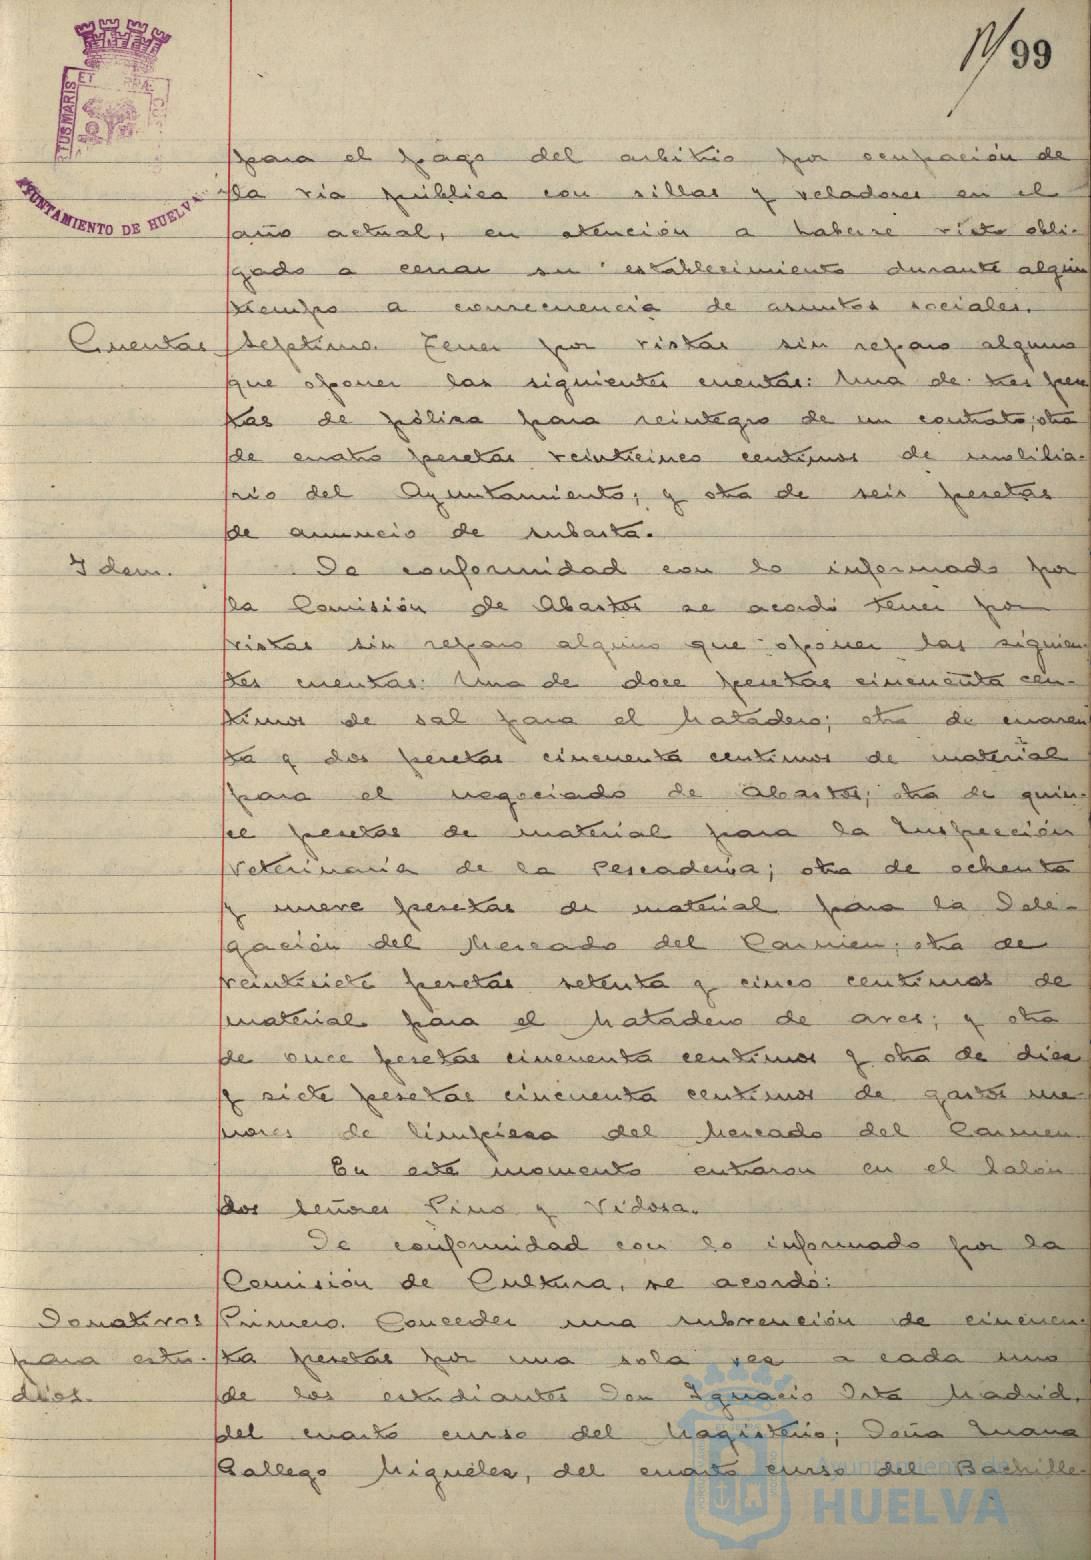 99
TUS MARIS ET
AYUNTAMIENTO DE HUELVA
para el pago del arbitrio por ocupación de
la via pública con sillas y veladores en el
año actual, en atención a haberse visto obli-
gado a cerrar su establecimiento durante algun
tiempo a consecuencia de asuntos sociales.
Cuentas
Septimo. Tener por vistas sin reparo alguno
que oponer las siguientes cuentas: Una de tres pese
tas de póliza para reintegro de un contrato; otra
de cuatro pesetas veinticinco centimos de mobilia-
rio del Ayuntamiento; y otra de seis pesetas
de anuncio de subasta.
Idem.
De conformidad con lo informado por
la Comisión de Abastos se acordó tener por
vistas sin reparo alguno que oponer las siguien-
tes cuentas: Una de doce pesetas cincuenta cen-
timos de sal para el Matadero; otra de cuaren
ta y dos pesetas cincuenta centimos de material
para el negociado de Abastos; otra de quin-
ce pesetas de material para la Inspección
Veterinaria de la Pescaderia; otra de ochenta
y nueve pesetas de material para la Dele-
gación del Mercado del Carmen; otra de
veintisiete pesetas setenta y cinco centimos de
material para el Matadero de aves; y otra
de once pesetas cincuenta centimos y otra de diez
y siete pesetas cincuenta centimos de gastos me-
nores de limpieza del Mercado del Carmen.
En este momento entraron en el Salón
los Señores Pino y Vidosa.
De conformidad con lo informado por la
Comisión de Cultura, se acordó:
Donativos
para estu-
dios.
Primero. Conceder una subvención de cincuen-
ta pesetas por una sola vez a cada uno
de los estudiantes Don Ignacio Orta Madrid,
del cuarto curso del Magisterio; Doña Juana
Gallego Miguélez, del cuarto curso del Bachille-
Ayuntamiento de
HUELVA